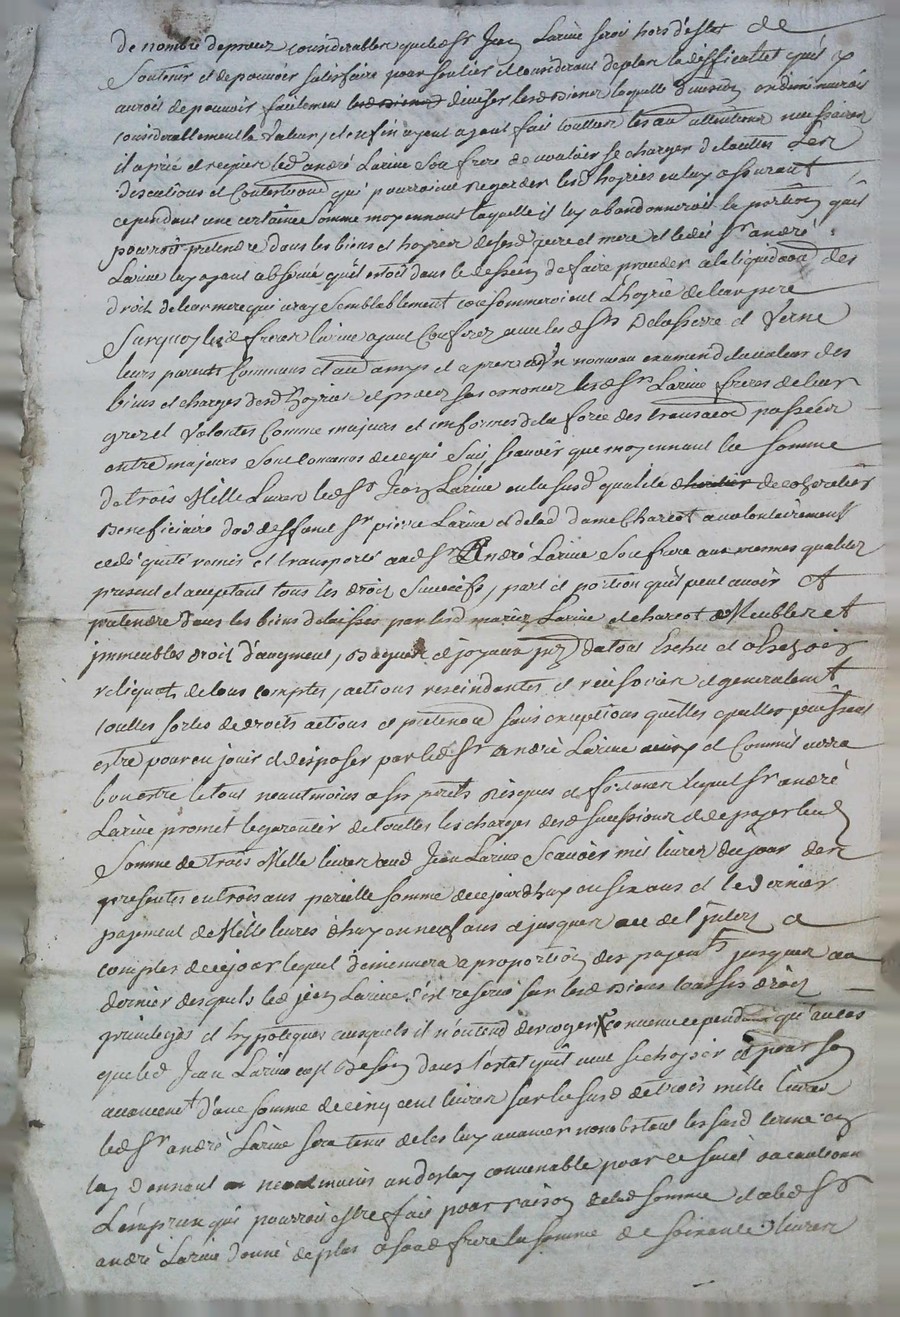 de nombre de procez considerables que led sr Jean Larine seroit hors d'estat de
Soutenir et de pouvoir satisfaire pour soutier et considerant de plus la difficultet quil y
auroit de pouvoir facilement diviser lesd biens laquelle division en diminueroit
considerablement la valeur, et enfin ayant fait touttes les attentions necessaires
il a prié et requis led andré Larine son frere de vouloir se charger de touttes les
discutions et Contestaons qui pourroint regarder lesd hoyries en luy assurant
cependant une certaine somme moyennant laquelle il luy abandonneroit la portion quil
pourroit pretendre dans les biens et hoyries desesd pere et mere et led sr andré
Larine luy ayant observé quil estoit dans le dessein de faire proceder a la liquidaon des
droits de leur mere qui vray semblablement consommeroient l'hoyrie de leur pere
Surquoy lesd freres Larine ayant Conferez avec les srs Delasserre et Verne
leurs parents Communs et amys et apres un nouveau examend de la valeur des
biens et charges desd hoyries et procez lesd srs Larine freres de leur
grez et volontes Comme majeurs et informes de la force des transaons passées
entre majeurs sont convenus de ce qui suit scavoir que moyennant la somme
de trois Mille Livres led sr Jean Larine en la susd qualité de coheretier
Beneficiaire dud deffunt sr pierre Larine et de lad dame Charcot a volontairement
cedé quité remis et transporté aud sr André Larine son frere aux mesmes qualitez
present et acceptant tous les droits successifs, part et portion quil peut avoir et
pretendre dans les biens delaissés par lesd mariez Larine et charcot Meubles et
immeubles droit d'augment, bagues et joyaux de tout Escheu et a Escheoir
reliquats de tous comptes, actions rescindantes et rescisoires et generalement
touttes sortes de droits actions et pretenaons sans exceptions quelles quelles puissent
estre pour en jouir et disposer par led sr andré Larine ainsy et Comme il verra
bon estre le tout neantmoins a ses perils Risques et fortunes lequel sr andré
Larine promet le garentir de touttes les charges desd successions et de payer lad
Somme de trois Mille livres aud Jean Larine Scavoir mil livres du jour des
presentes en trois ans pareille somme de ce jourdhuy en six ans et le dernier
payement de Mille livres d'huy en neuf ans et jusques a ce de l'interest a
compter de ce jour lequel diminuera a proportion des payemts jusques au
dernier desquels led jean Larine s'est reservé sur lesd biens tous ses droits
privileges et hypoteques ausquels il n'entend deroger convenu cependant qu'au cas
que led Jean Larine eust Besoin dans l'estat quil veut se choisir et pour son
avancement d'une somme de cinq cent livres sur la susd de trois mille livres
led sr andré Larine sera tenu de les luy avancer nonobstant les susd termes en
luy donnant neantmoins un deslay convenable pour ce sujet
L'emprun qui pourroit estre fait pour raison de lad somme et led sr
andré Larine donne de plus a sond frere la somme de soixante livres